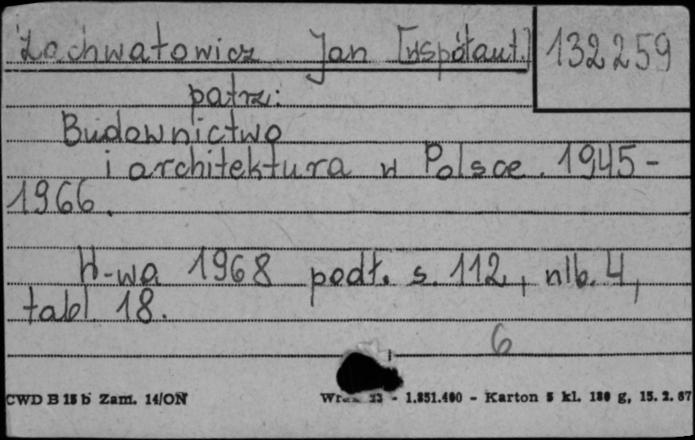 Zachwatowicz Jan [współaut.] 132259
patrz:
Budownictwo
i architektura w Polsce. 1945-
1966.
W-wa 1968 podł. s. 112, nlb. 4,
tabl 18.
6
CWD B 15 b Zam. 14/ON - 1.851.400 - Karton 5 kl. 180 g, 15. 2. 67